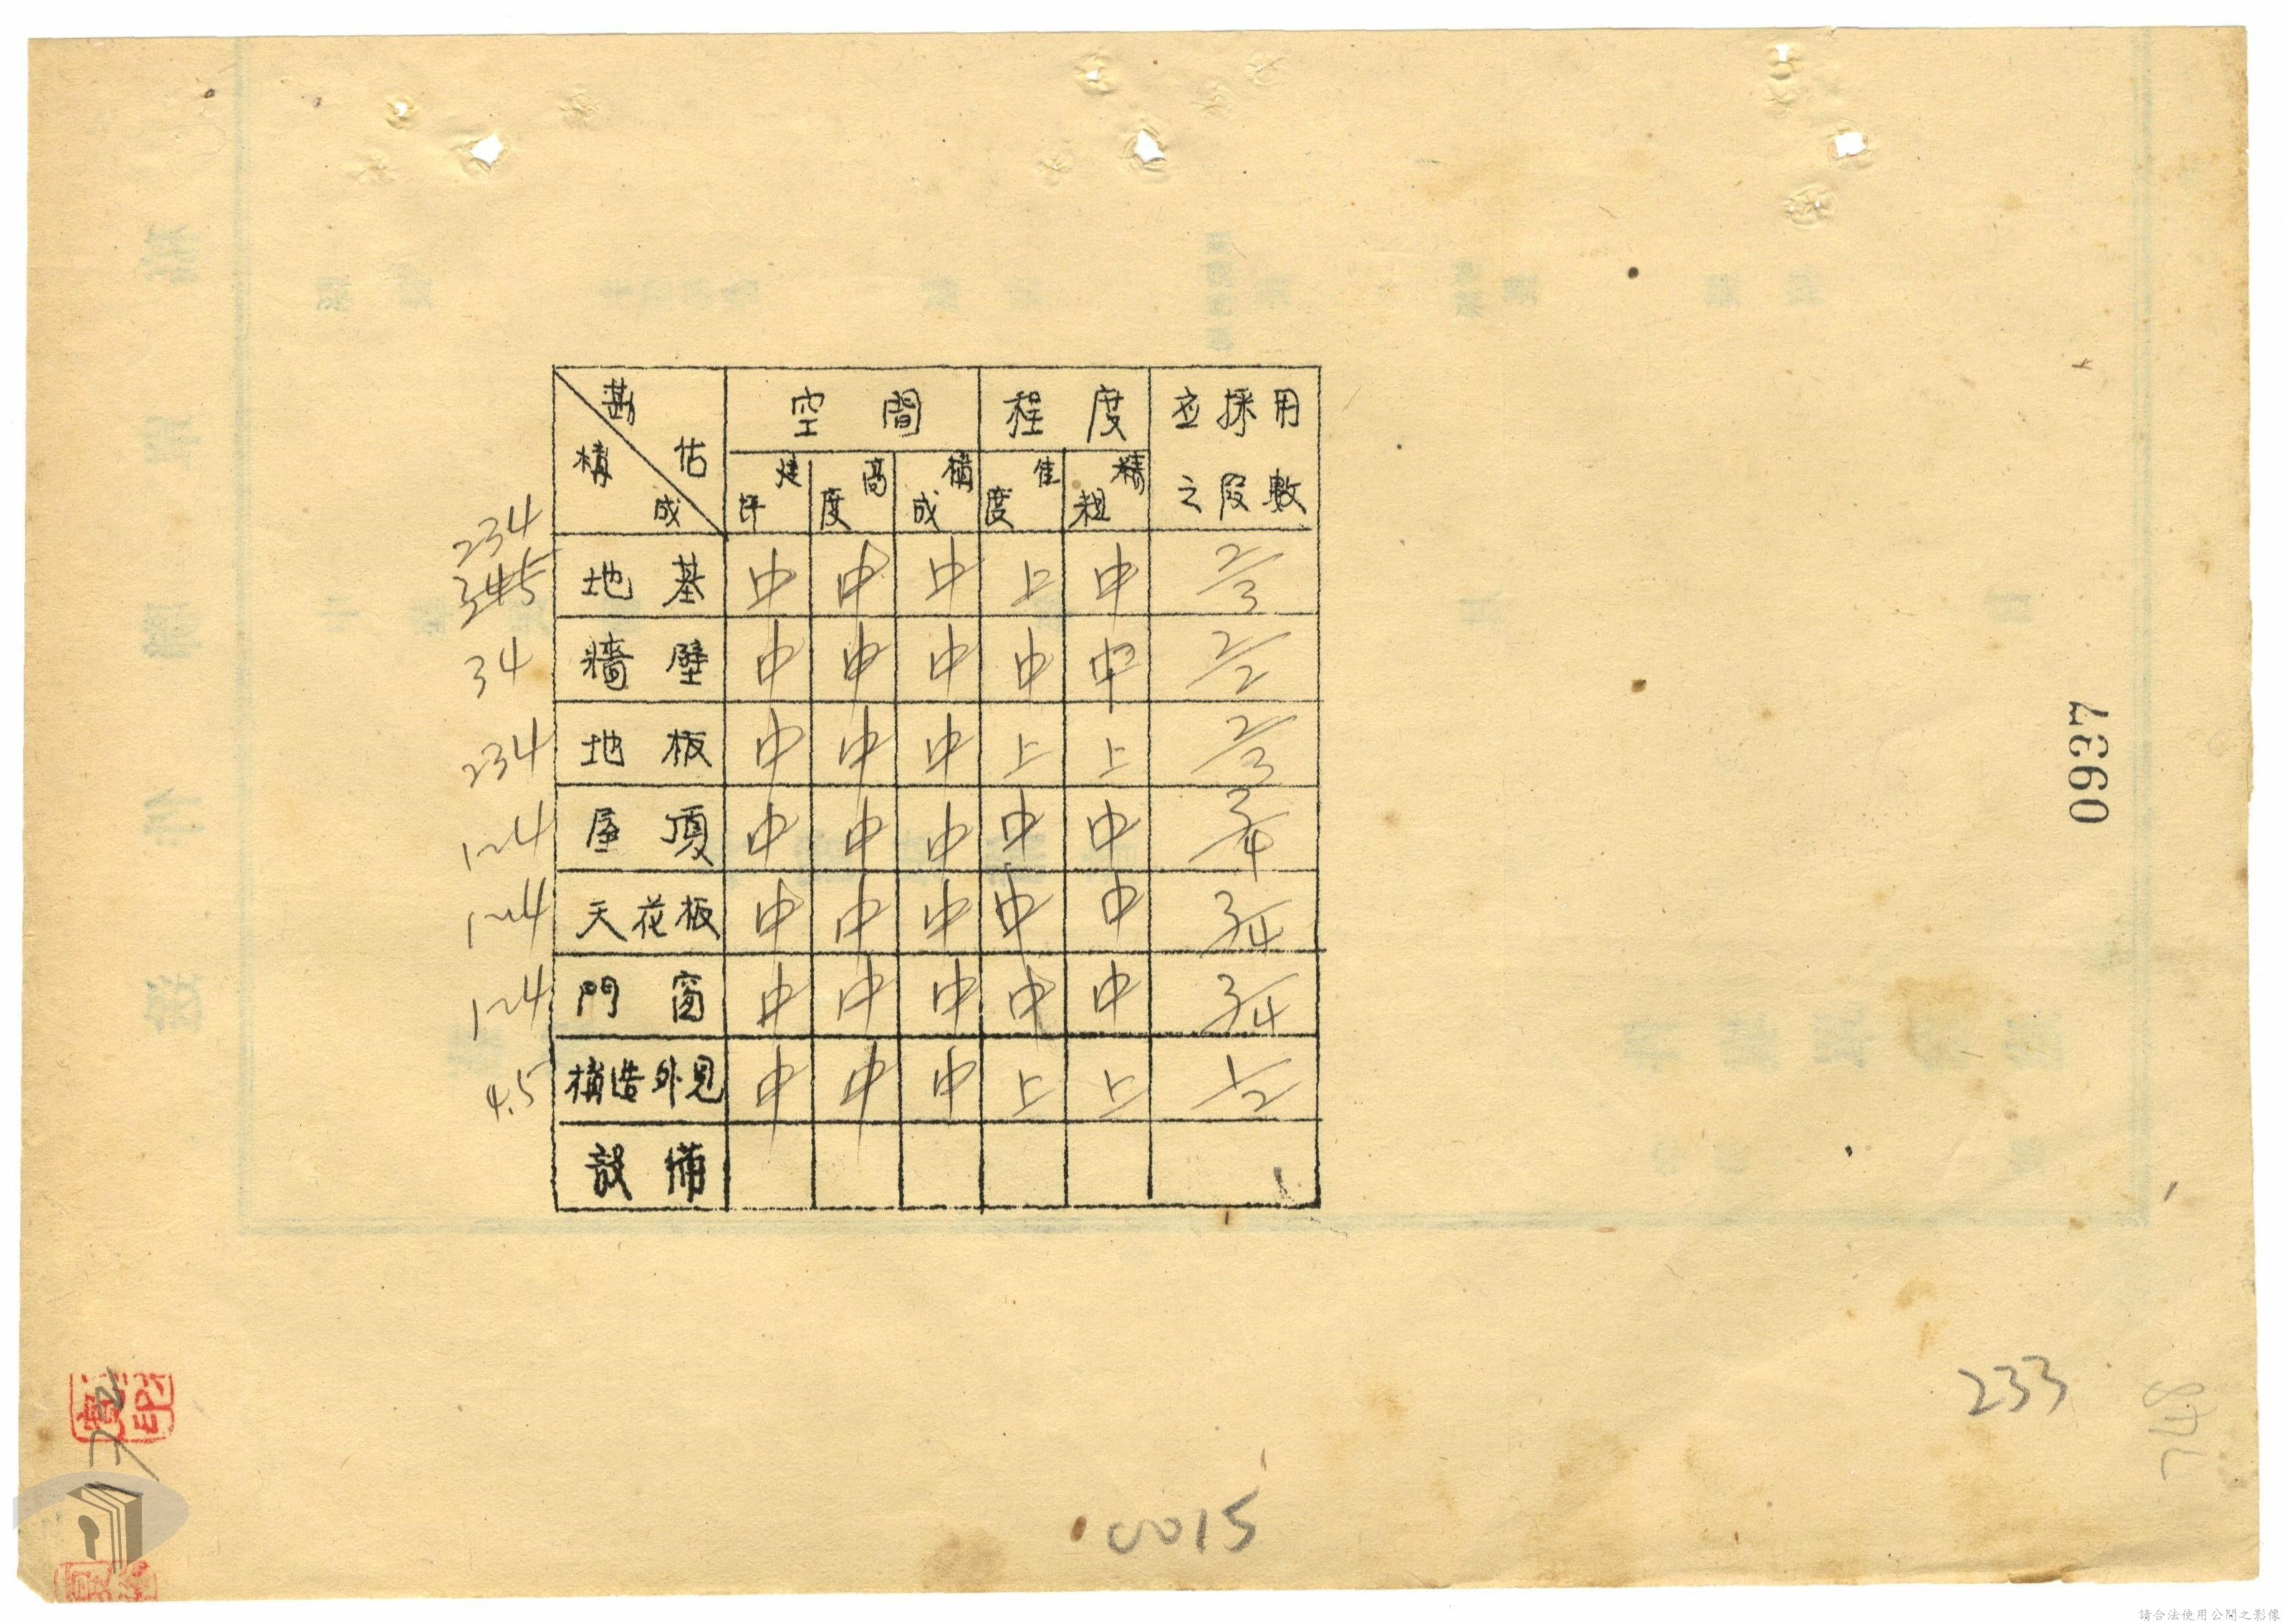 勘估 構成 空間 程度 並採用之段數
建坪 高度 構成 佳度 精粗
234
345 地基 中 中 中 上 中 2/3
34 牆壁 中 中 中 中 中 2/2
234 地板 中 中 中 上 上 2/3
1~4 屋頂 中 中 中 中 中 3/4
1~4 天花板 中 中 中 中 中 3/4
1~4 門窗 中 中 中 中 中 3/4
4.5 構造外見 中 中 中 上 上 1/2
設備
0937
233
0015
請合法使用公開之影像